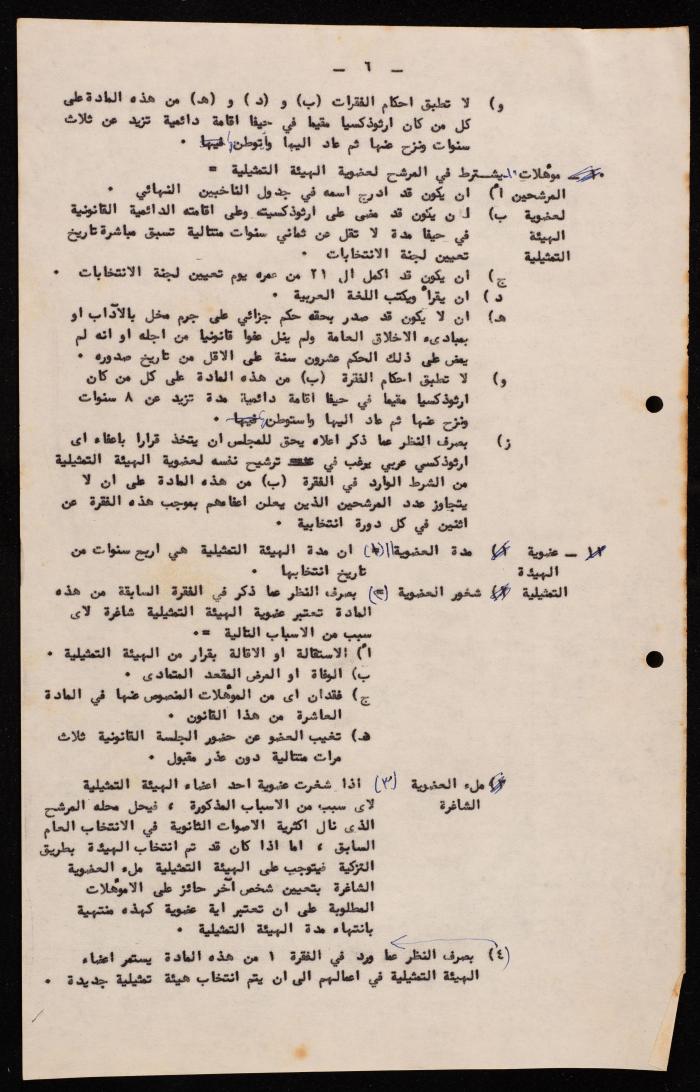 ـ ٦ ـ
و) لا تطبق احكام الفقرات (ب) و (د) و (هـ) من هذه المادة على
كل من كان ارثوذكسيا مقيما في حيفا اقامة دائمية تزيد عن ثلاث
سنوات ونزح عنها ثم عاد اليها واستوطن فيها ٠
مؤهلات يشترط في المرشح لعضوية الهيئة التمثيلية =
المرشحين أ) ان يكون قد ادرج اسمه في جدول الناخبين النهائي ٠
لعضوية ب) ان يكون قد مضى على ارثوذكسيته وعلى اقامته الدائمية القانونية
الهيئة في حيفا مدة لا تقل عن ثماني سنوات متتالية تسبق مباشرة تاريخ
التمثيلية تعيين لجنة الانتخابات ٠
ج) ان يكون قد اكمل ال ٢١ من عمره يوم تعيين لجنة الانتخابات ٠
د) ان يقرأ ويكتب اللغة العربية ٠
هـ) ان لا يكون قد صدر بحقه حكم جزائي على جرم مخل بالآداب او
بمبادىء الاخلاق العامة ولم ينل عفوا قانونيا من اجله او انه لم
يمض على ذلك الحكم عشرون سنة على الاقل من تاريخ صدوره ٠
و) لا تطبق احكام الفقرة (ب) من هذه المادة على كل من كان
ارثوذكسيا مقيما في حيفا اقامة دائمية مدة تزيد عن ٨ سنوات
ونزح عنها ثم عاد اليها واستوطن فيها ٠
ز) بصرف النظر عما ذكر اعلاه يحق للمجلس ان يتخذ قرارا باعفاء اى
ارثوذكسي عربي يرغب في ترشيح نفسه لعضوية الهيئة التمثيلية
من الشرط الوارد في الفقرة (ب) من هذه المادة على ان لا
يتجاوز عدد المرشحين الذين يعلن اعفاءهم بموجب هذه الفقرة عن
اثنين في كل دورة انتخابية ٠
ـ عضوية مدة العضوية ان مدة الهيئة التمثيلية هي اربع سنوات من
الهيئة تاريخ انتخابها ٠
التمثيلية شغور العضوية بصرف النظر عما ذكر في الفقرة السابقة من هذه
المادة تعتبر عضوية الهيئة التمثيلية شاغرة لاى
سبب من الاسباب التالية =٠
أ) الاستقالة او الاقالة بقرار من الهيئة التمثيلية ٠
ب) الوفاة او المرض المقعد المتمادى ٠
ج) فقدان اى من المؤهلات المنصوص عنها في المادة
العاشرة من هذا القانون ٠
هـ) تغيب العضو عن حضور الجلسة القانونية ثلاث
مرات متتالية دون عذر مقبول ٠
ملء العضوية (٣) اذا شغرت عضوية احد اعضاء الهيئة التمثيلية
الشاغرة لاى سبب من الاسباب المذكورة ، فيحل محله المرشح
الذى نال اكثرية الاصوات الثانوية في الانتخاب العام
السابق ، اما اذا كان قد تم انتخاب الهيئة بطريق
التزكية فيتوجب على الهيئة التمثيلية ملء العضوية
الشاغرة بتعيين شخص آخر حائز على الامؤهلات
المطلوبة على ان تعتبر اية عضوية كهذه منتهية
بانتهاء مدة الهيئة التمثيلية ٠
(٤) بصرف النظر عما ورد في الفقرة ١ من هذه المادة يستمر اعضاء
الهيئة التمثيلية في اعمالهم الى ان يتم انتخاب هيئة تمثيلية جديدة ٠